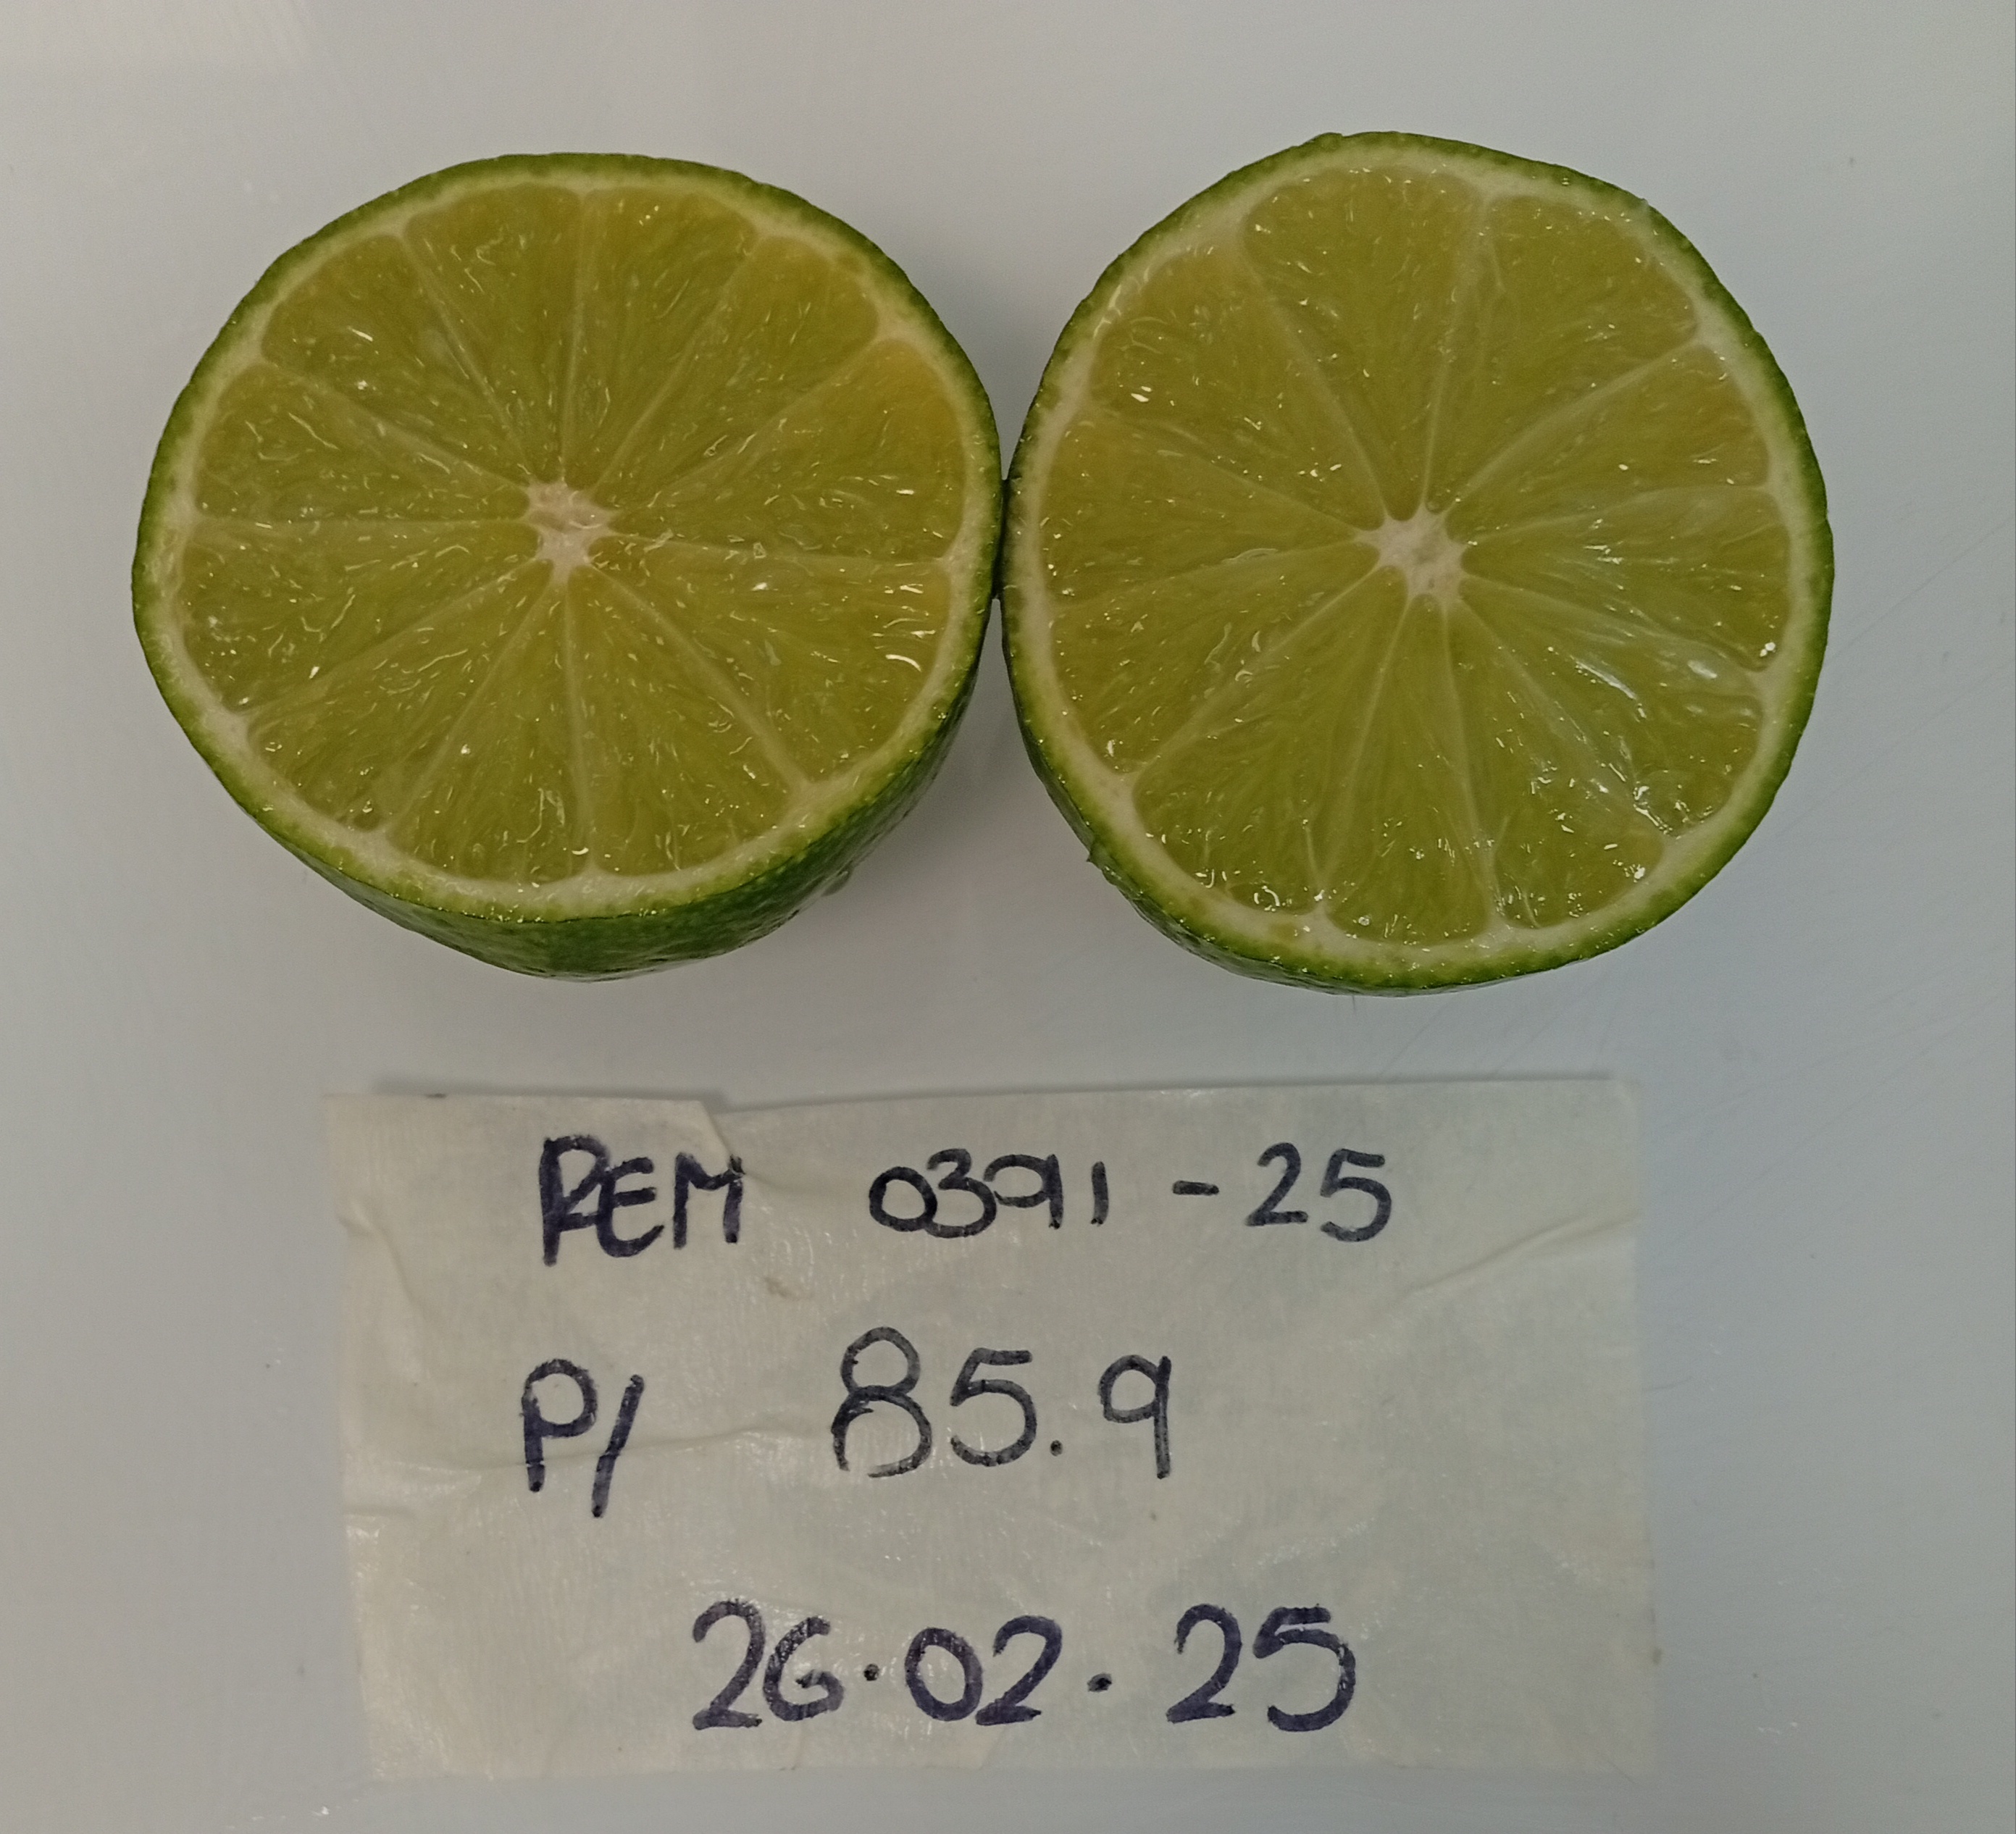 REM 0391-25
P/ 85.9
26.02.25